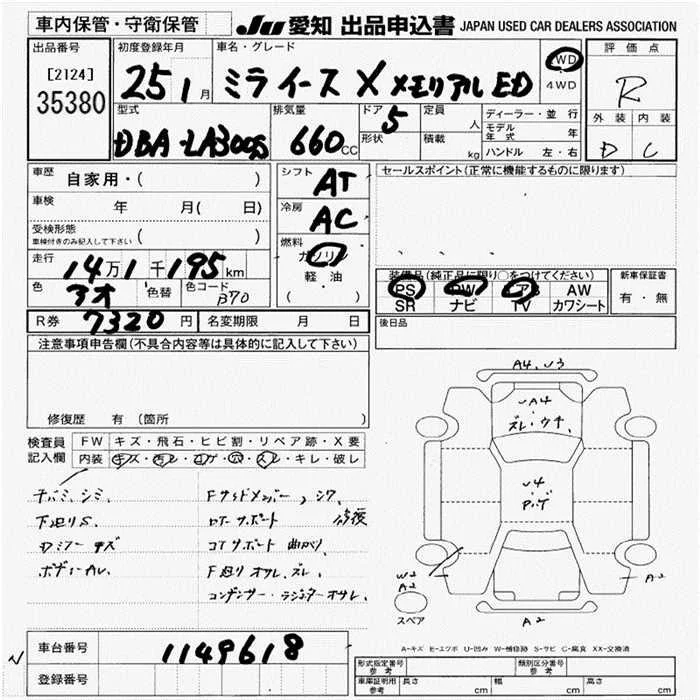 車内保管・守衛保管
JU 愛知 出品申込書 JAPAN USED CAR DEALERS ASSOCIATION
出品番号
[2124]
35380
初度登録年月
25 1月
車名・グレード
ミライース X メモリアルED
2WD
4WD
評価点
R
外装 内装
D C
型式
DBA-LA300S
排気量
660 CC
ドア 5
形状
定員 人
積載 kg
ディーラー・並行
モデル年式 年
ハンドル 左・右
車歴 自家用・( )
車検 年 月( 日)
受検形態
車検付きのみ記入して下さい ( )
走行 14万1千195km
色 アオ 色替 色コード B70
R券 7320円 名変期限 月 日
シフト AT
冷房 AC
燃料
ガソリン
軽油
( )
セールスポイント(正常に機能するものに限ります)
装備品(純正品に限り○をつけてください)
PS PW エアB AW
SR ナビ TV カワシート
新車保証書
有・無
後日品
注意事項申告欄(不具合内容等は具体的に記入して下さい)
修復歴 有(箇所 )
検査員記入欄
FW キズ・飛石・ヒビ割・リペア跡・X要
内装 キズ・汚レ・コゲ・穴・スレ・キレ・破レ
シミ、
下廻りS、
Dミラーキズ
ボデーAU、
Fサイドメンバー、シワ、
修復
コアサポート 曲がり、
F廻り オサレ、ズレ、
コンデンサー・ラジエターオサレ、
A4、U3
UA4
ズレ・ウチ
U4
W2
A2
A2
A2
スペア
A-キズ E-エクボ U-凹み W-補修跡 S-サビ C-腐食 XX-交換済
車台番号 1149618
登録番号
形式指定番号 参考
類別区分番号 参考
車庫証明用 参考 長さ cm 幅 cm 高さ cm